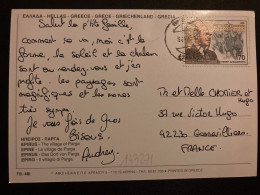 ΕΛΛΑΔΑ - HELLAS - GREECE - GRECE - GRIECHENLAND - GRECIA
Salut les p'tits famille,
comment ça va, moi c'est la
forme, le soleil et la chaleur
sont au rendez-vous et j'en
profite. les paysages sont
magnifiques et les
très sympa.
Je vous fais de Gros
Bisous.
Audrey
170
Mr et Melle et Hugo
37 rue Victor Hugo
92230 Gennevilliers
FRANCE.
ΗΠΕΙΡΟΣ - ΠΑΡΓΑ
EPIRUS - The village of Parga
EPIRE - Le village de Parga
EPIRUS - Das Dorf von Parga
EPIRO - Il villaggio di Parga